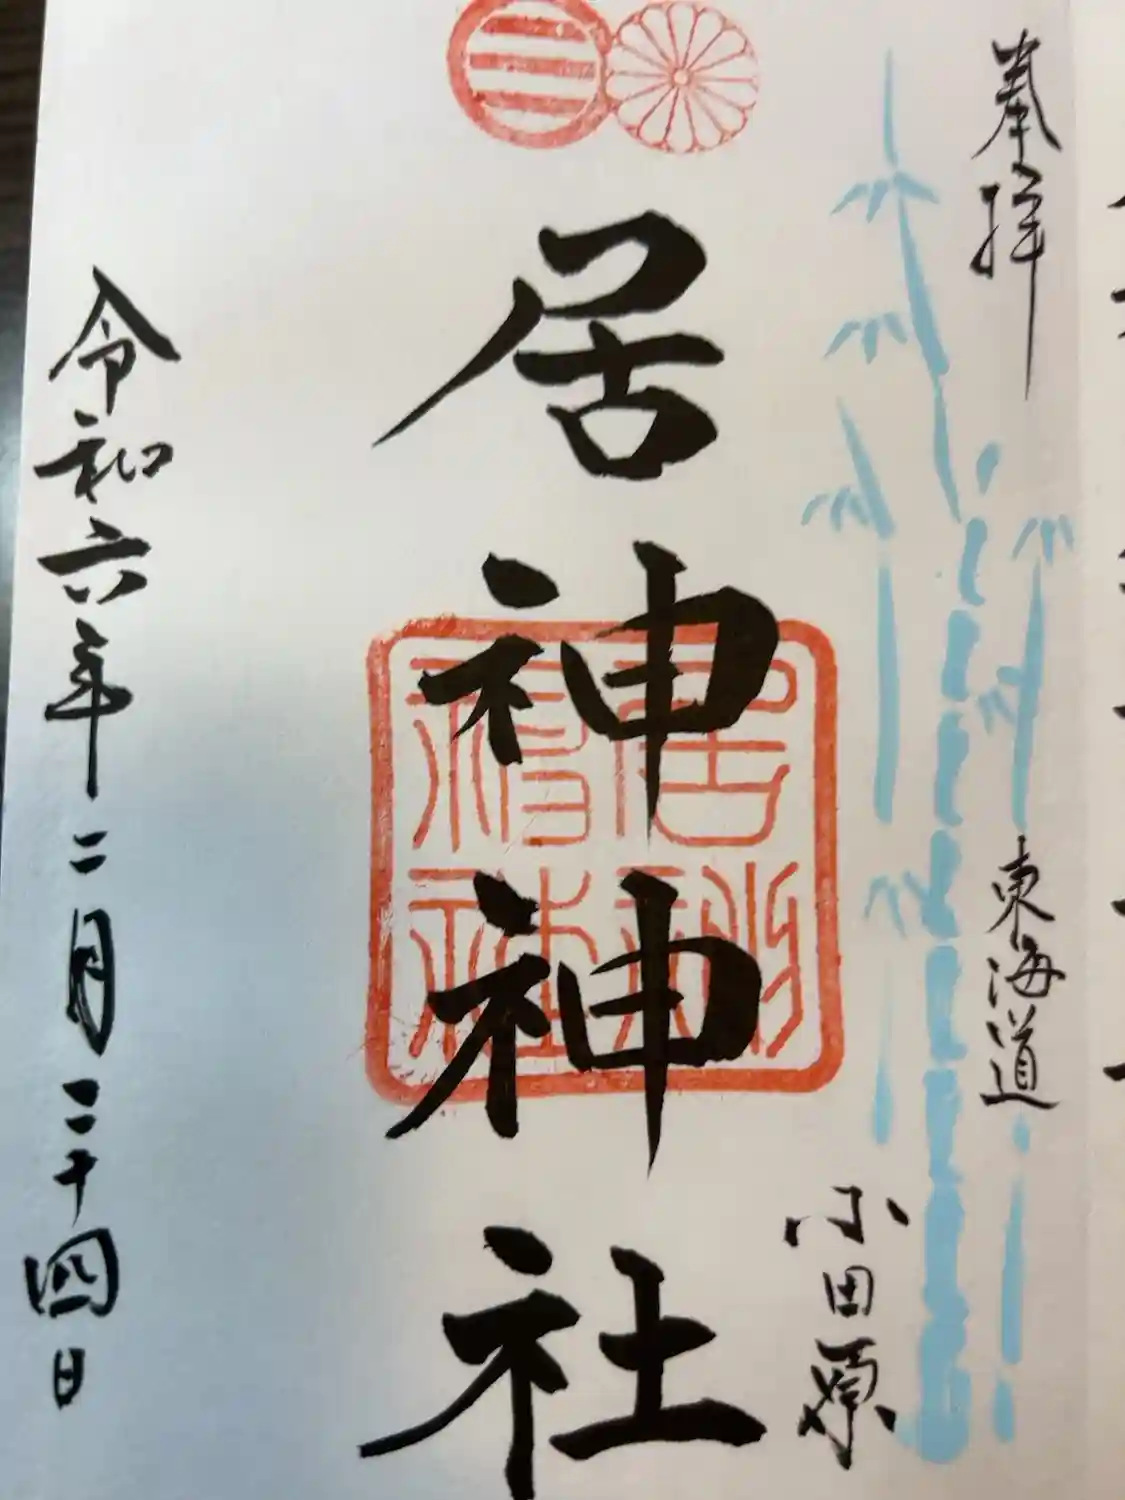 奉拝
東海道
小田原
居神神社
居神神社
令和六年二月二十四日